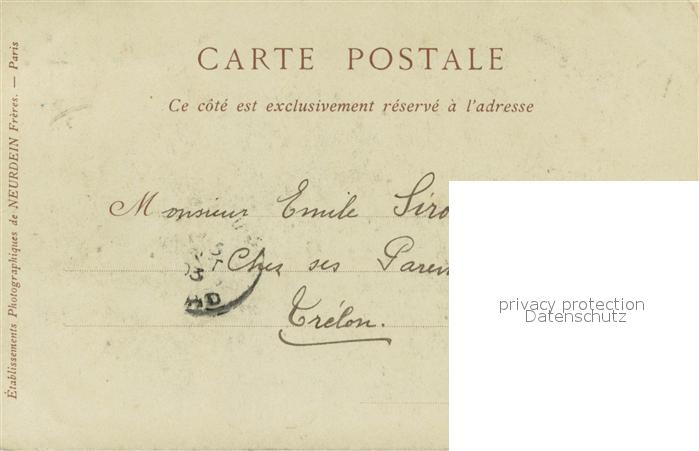 CARTE POSTALE
Ce côté est exclusivement réservé à l'adresse
Monsieur Emile
Chez ses
Trélon.
Établissements Photographiques de NEURDEIN Frères. — Paris
privacy protection
Datenschutz